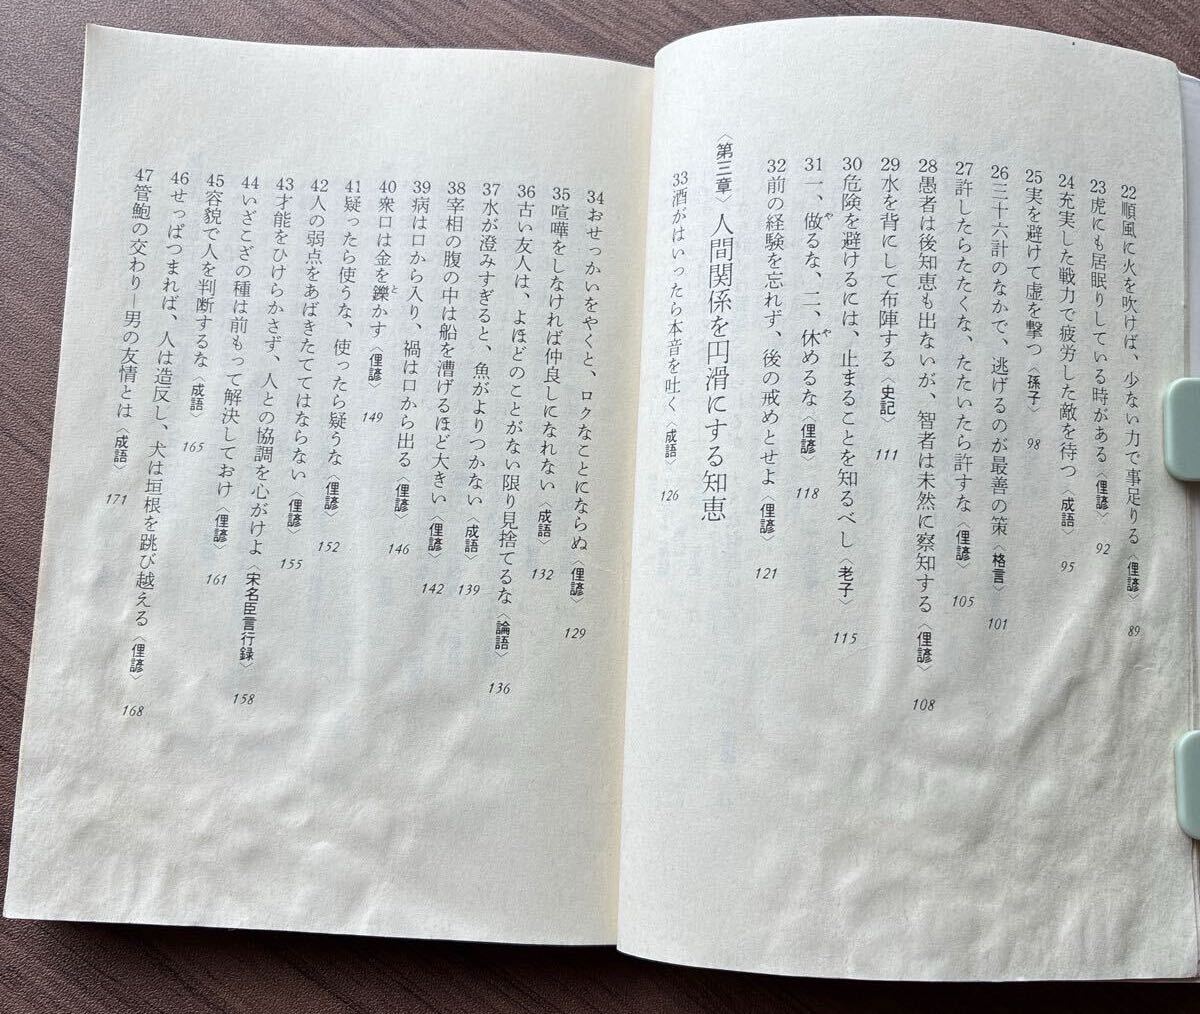 22順風に火を吹けば、少ない力で事足りる〈俚諺〉 89
23虎にも居眠りしている時がある〈俚諺〉 92
24充実した戦力で疲労した敵を待つ〈成語〉 95
25実を避けて虚を撃つ〈孫子〉 98
26三十六計のなかで、逃げるのが最善の策〈格言〉 101
27許したらたたくな、たたいたら許すな〈俚諺〉 105
28愚者は後知恵も出ないが、智者は未然に察知する〈俚諺〉 108
29水を背にして布陣する〈史記〉 111
30危険を避けるには、止まることを知るべし〈老子〉 115
31一、做るな、二、休めるな〈俚諺〉 118
や や
32前の経験を忘れず、後の戒めとせよ〈俚諺〉 121
〈第三章〉人間関係を円滑にする知恵
33酒がはいったら本音を吐く〈成語〉 126
34おせっかいをやくと、ロクなことにならぬ〈俚諺〉 129
35喧嘩をしなければ仲良しになれない〈成語〉 132
36古い友人は、よほどのことがない限り見捨てるな〈論語〉 136
37水が澄みすぎると、魚がよりつかない〈成語〉 139
38宰相の腹の中は船を漕げるほど大きい〈俚諺〉 142
39病は口から入り、禍は口から出る〈俚諺〉 146
40衆口は金を鑠かす〈俚諺〉 149
と
41疑ったら使うな、使ったら疑うな〈俚諺〉 152
42人の弱点をあばきたててはならない〈俚諺〉 155
43才能をひけらかさず、人との協調を心がけよ〈宋名臣言行録〉 158
44いざこざの種は前もって解決しておけ〈俚諺〉 161
45容貌で人を判断するな〈成語〉 165
46せっぱつまれば、人は造反し、犬は垣根を跳び越える〈俚諺〉 168
47管鮑の交わり―男の友情とは〈成語〉 171